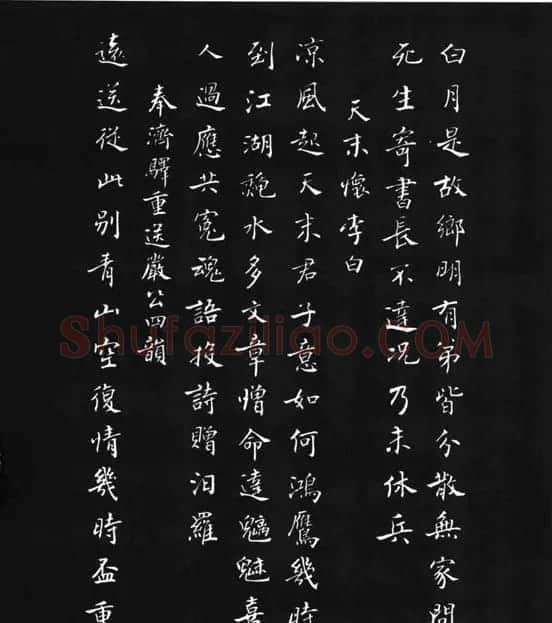 白月是故鄉明有弟皆分散無家問
死生寄書長不達況乃未休兵
天末懷李白
涼風起天末君子意如何鴻鴈幾時
到江湖秋水多文章憎命達魑魅喜
人過應共冤魂語投詩贈汨羅
奉濟驛重送嚴公四韻
遠送從此別青山空復情幾時盃重
Shufaziliao.COM